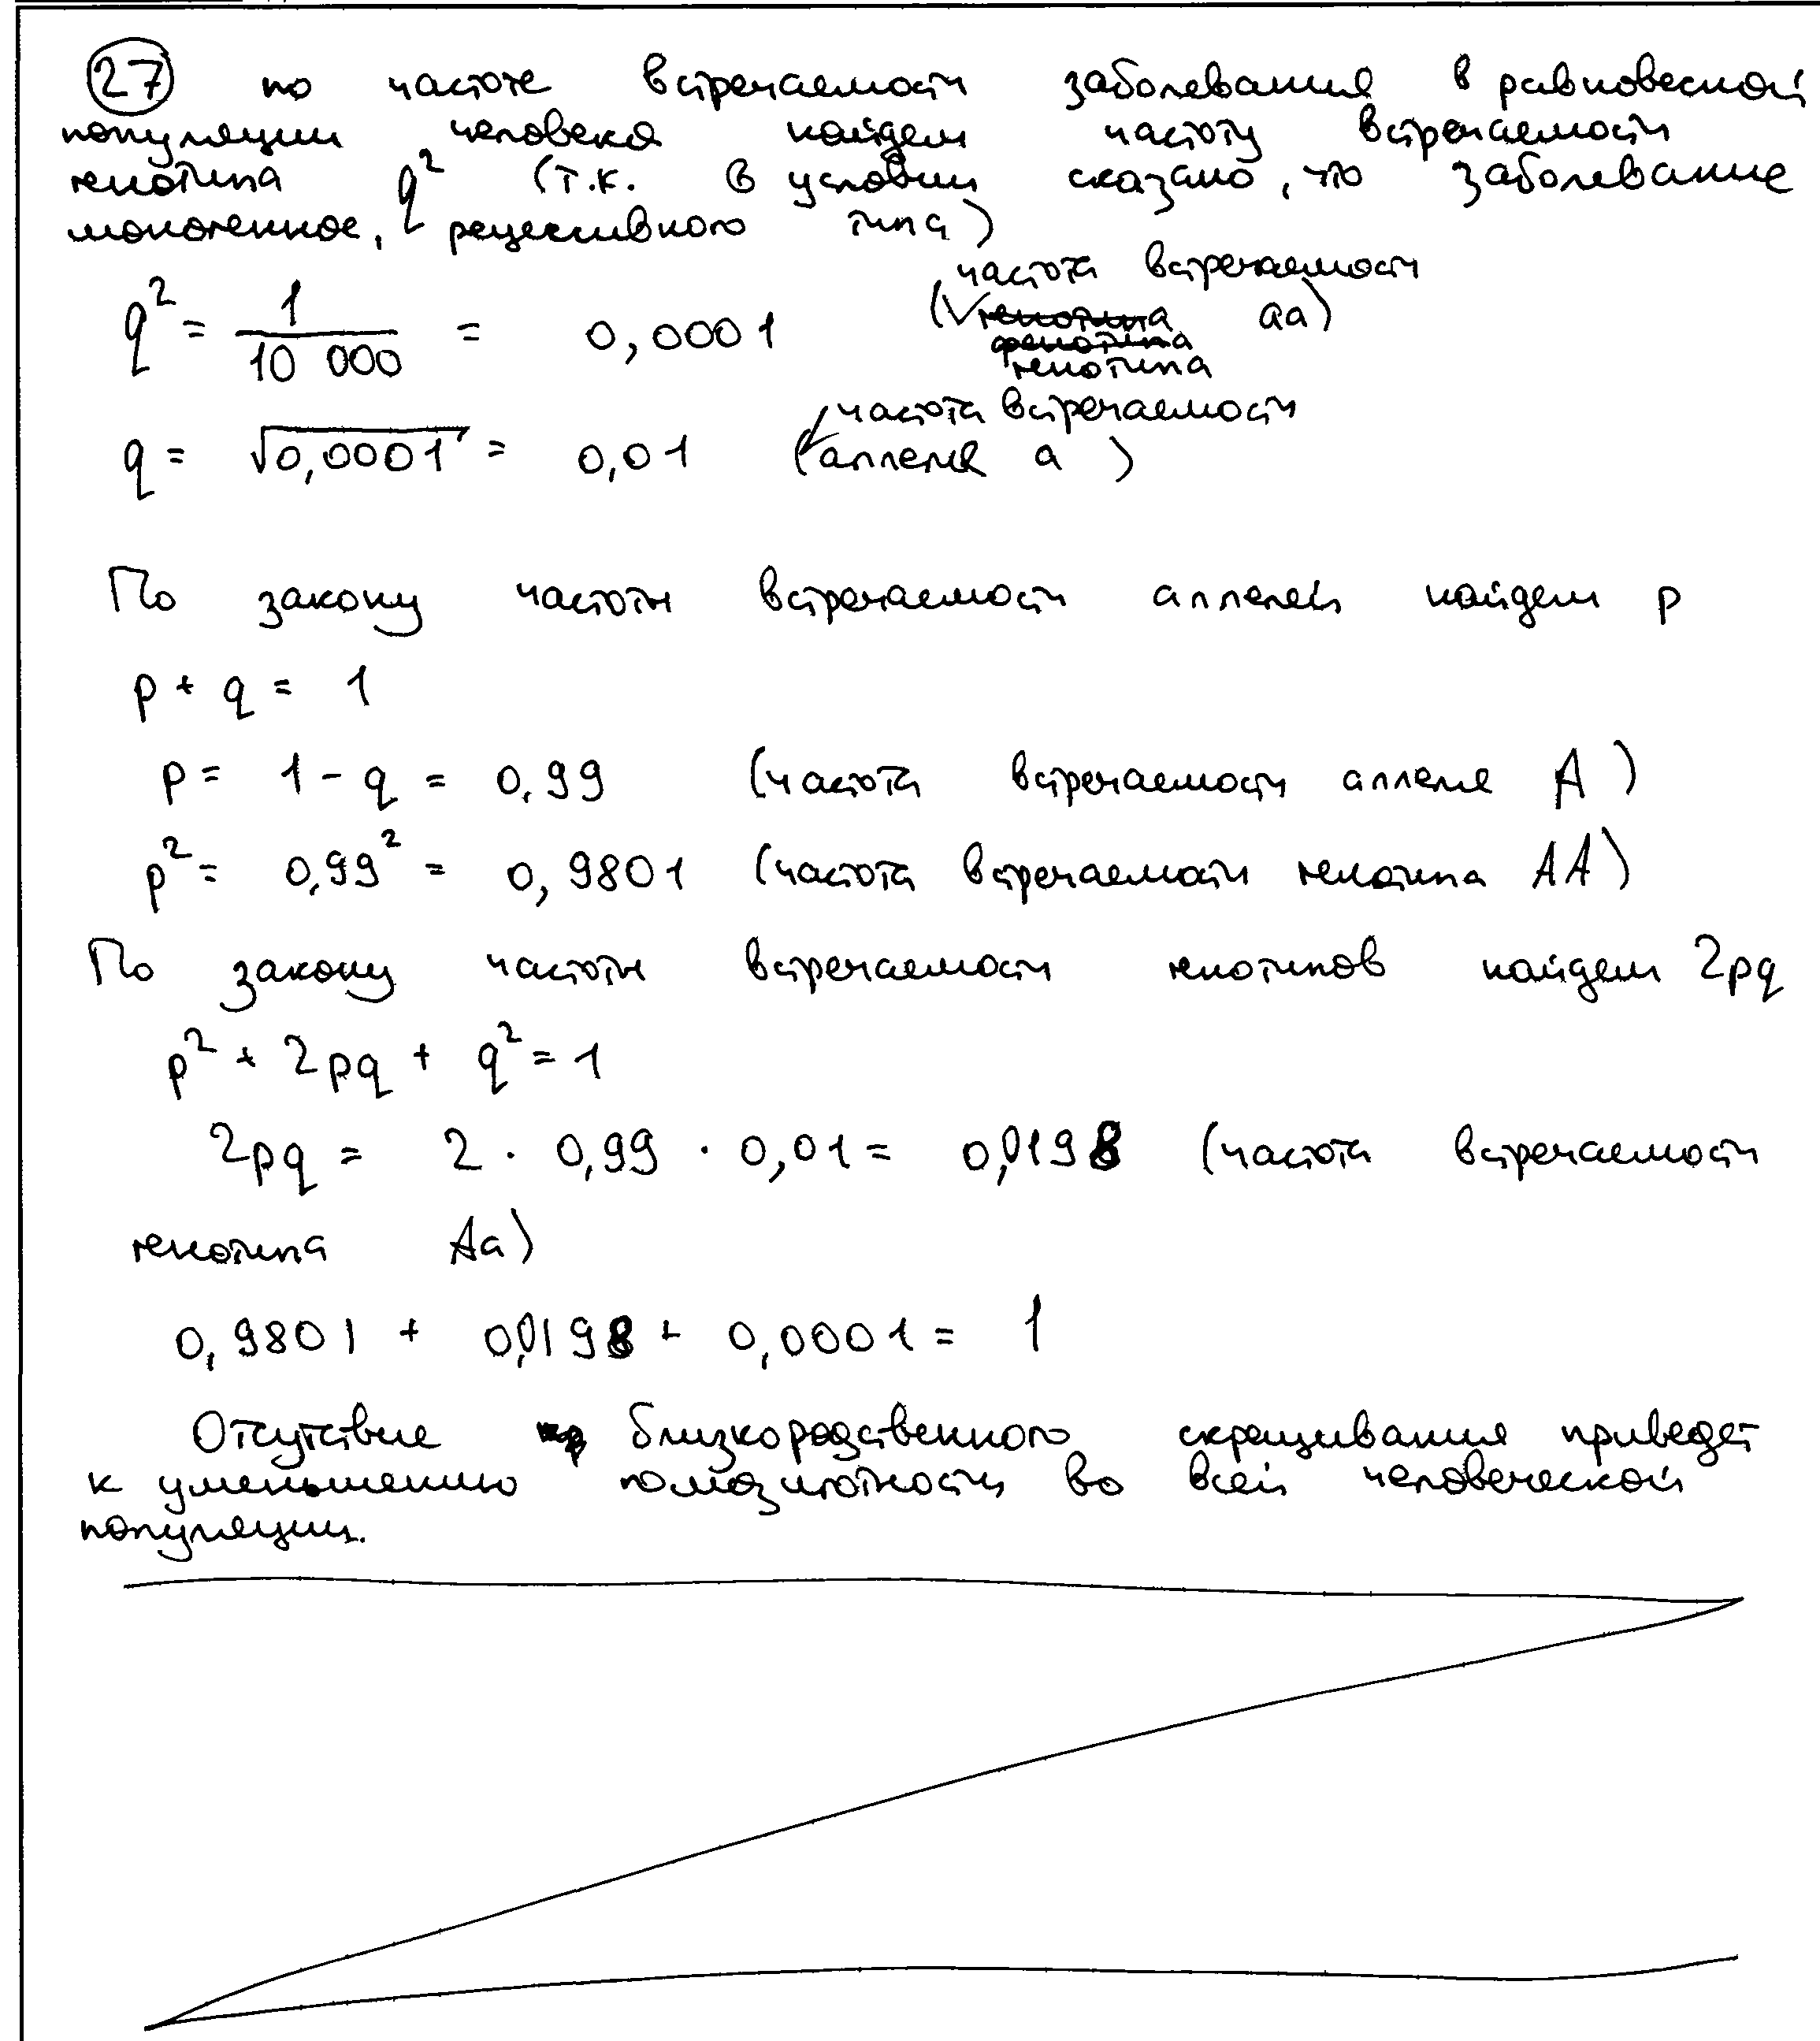 27 по частоте встречаемости заболевания в равновесной
популяции человека найдем частоту встречаемости
генотипа q² (т.к. в условии сказано, что заболевание
моногенное, рецессивного типа)
q² = 1/10 000 = 0,0001 (частота встречаемости генотипа aa)
q = √0,0001 = 0,01 (частота встречаемости аллеля a)
По закону частоты встречаемости аллелей найдем p
p + q = 1
p = 1 - q = 0,99 (частота встречаемости аллеля A)
p² = 0,99² = 0,9801 (частота встречаемости генотипа AA)
По закону частоты встречаемости генотипов найдем 2pq
p² + 2pq + q² = 1
2pq = 2 · 0,99 · 0,01 = 0,0198 (частота встречаемости
генотипа Aa)
0,9801 + 0,0198 + 0,0001 = 1
Отсутствие близкородственного скрещивания приведет
к уменьшению гомозиготности во всей человеческой
популяции.